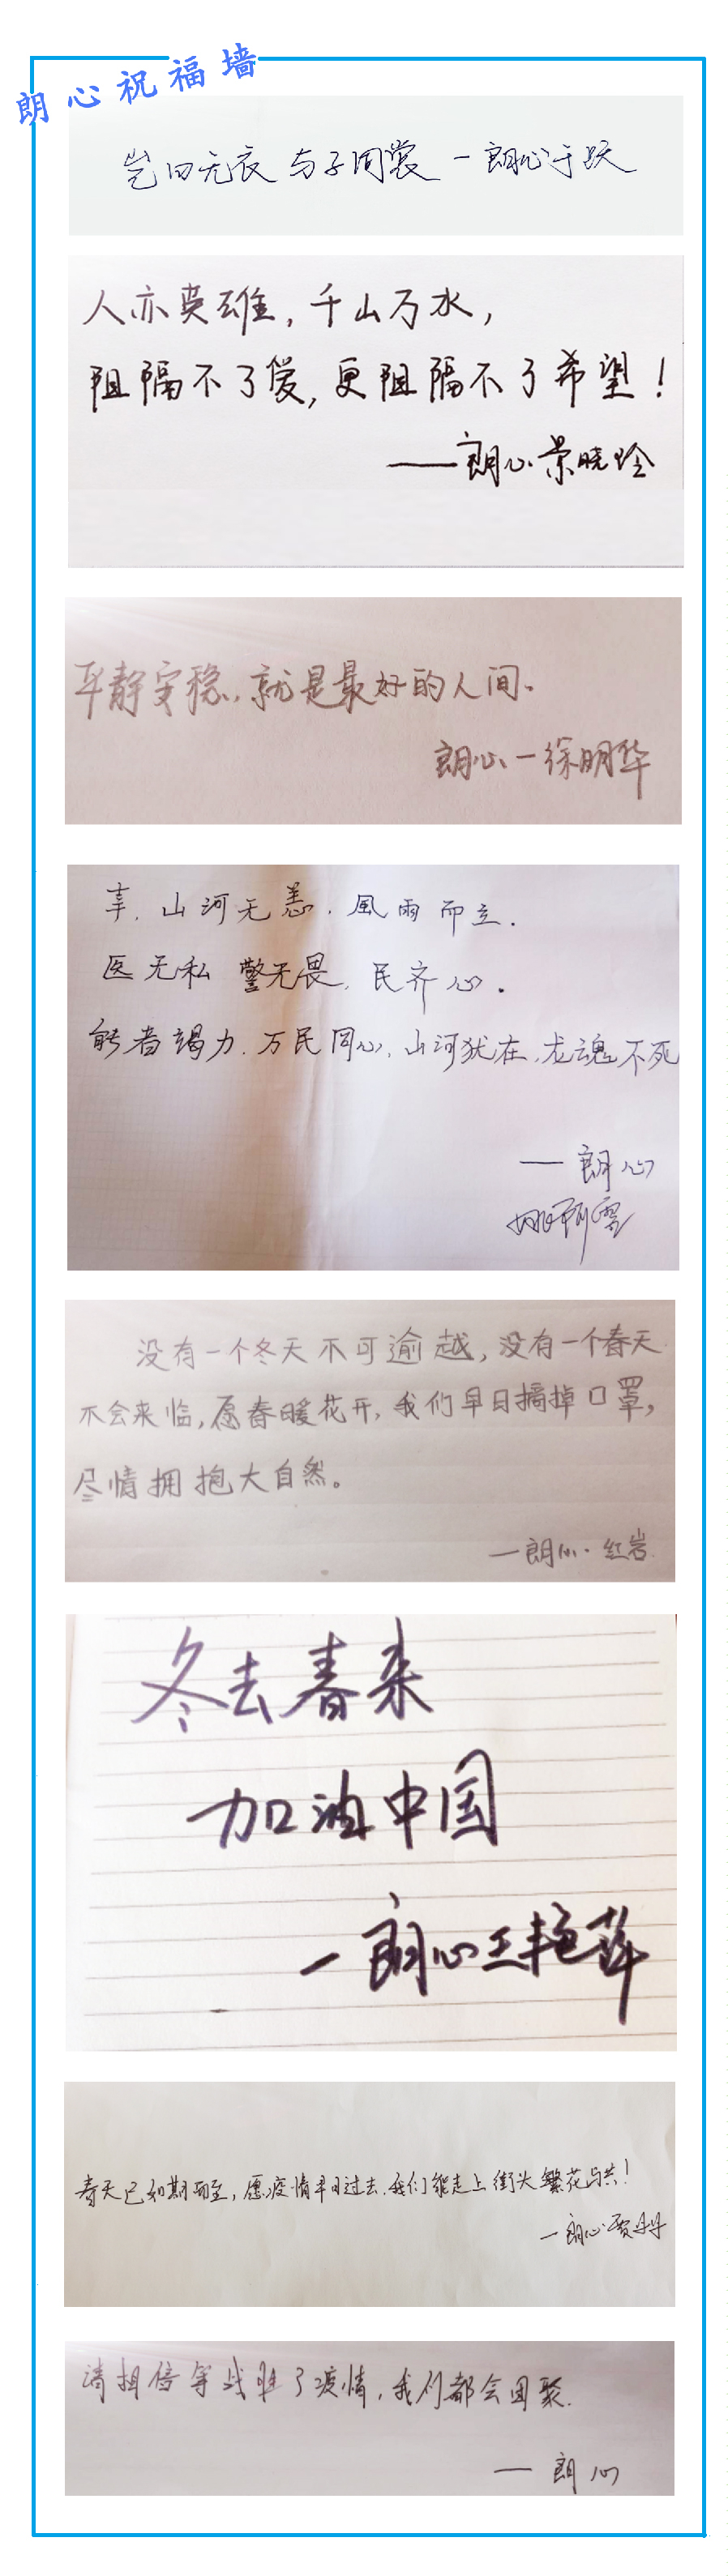 朗心祝福墙
岂曰无衣 与子同裳 一朗心于跃
人亦英雄，千山万水，
阻隔不了爱，更阻隔不了希望！
——朗心景晓玲
平静安稳，就是最好的人间。
朗心一徐明华
幸，山河无恙，風雨而立．
医无私 警无畏，民齐心．
能者竭力，万民同心，山河犹在，龙魂不死
— 朗心
没有一个冬天不可逾越，没有一个春天
不会来临，愿春暖花开，我们早日摘掉口罩，
尽情拥抱大自然。
一朗心·红岩
冬去春来
加油中国
一朗心王艳萍
春天已如期而至，愿疫情早日过去，我们能走上街头繁花与共！
一朗心贾丹丹
请相信等战胜了疫情，我们都会团聚．
— 朗心